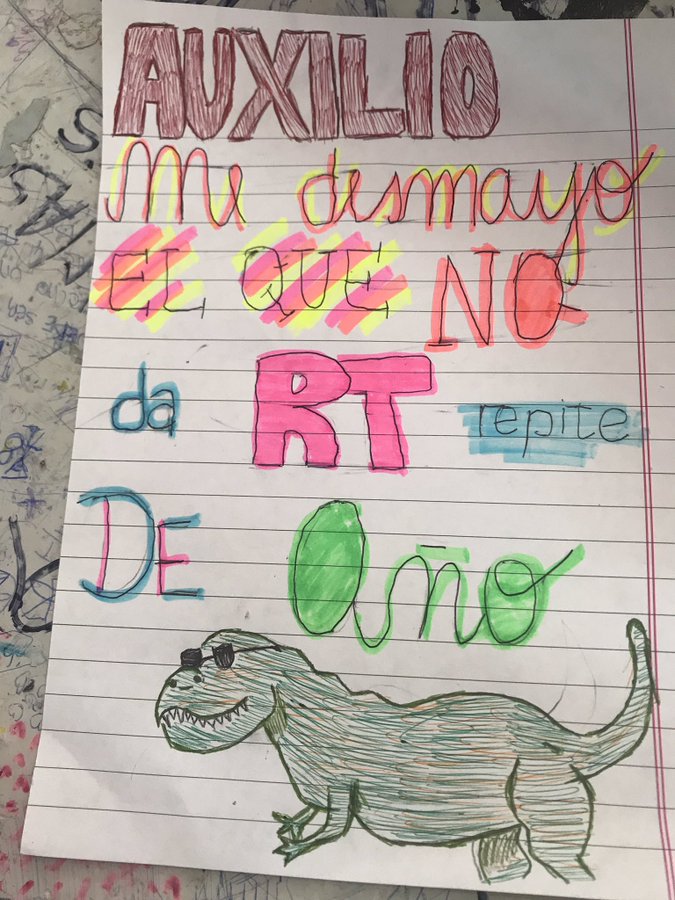 AUXILIO
Me desmayo
EL QUE NO
da RT repite
DE Año